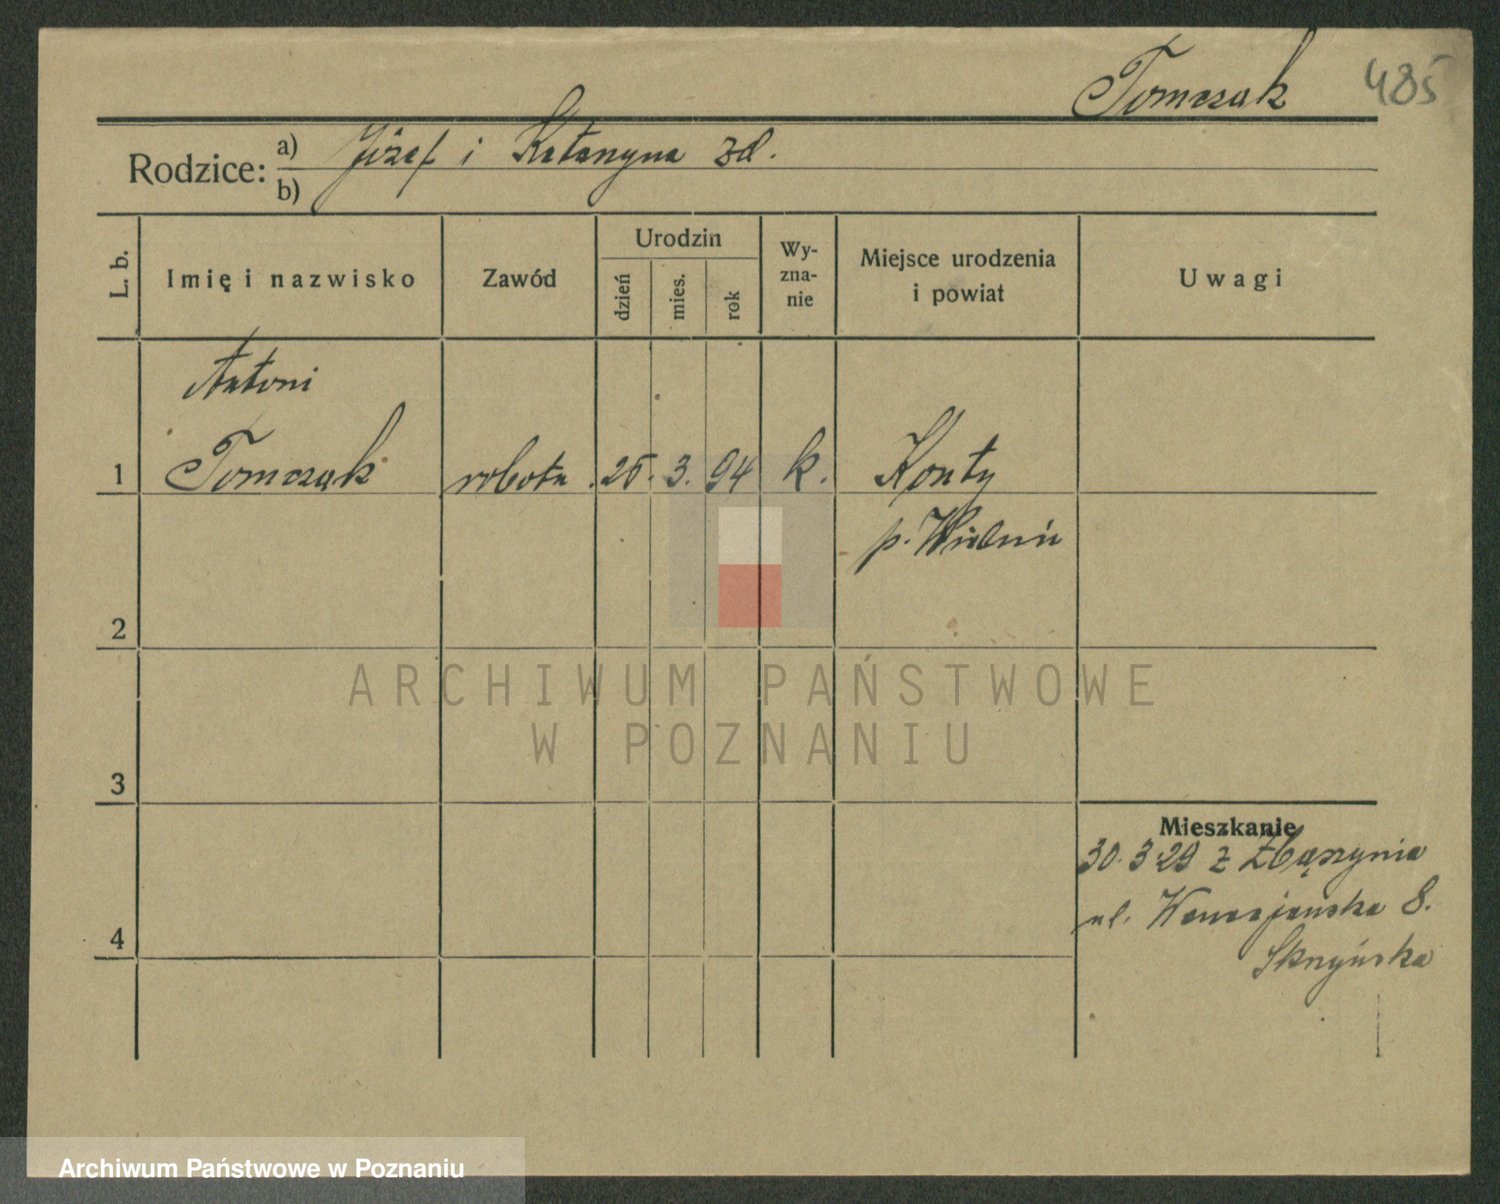 Tomczak 485
Rodzice: a) Józef i Katarzyna zd.
b)
L. b.
Imię i nazwisko
Zawód
Urodzin
dzień
mies.
rok
Wy-
zna-
nie
Miejsce urodzenia
i powiat
Uwagi
Antoni
1 Tomczak robotn. 25. 3. 94 k. Konty
p. Wieluń
2
3
4
Mieszkanie
30. 3 29 z Zbąszynia
ul. Wenecjańska 8.
ARCHIWUM PAŃSTWOWE
W POZNANIU
Archiwum Państwowe w Poznaniu